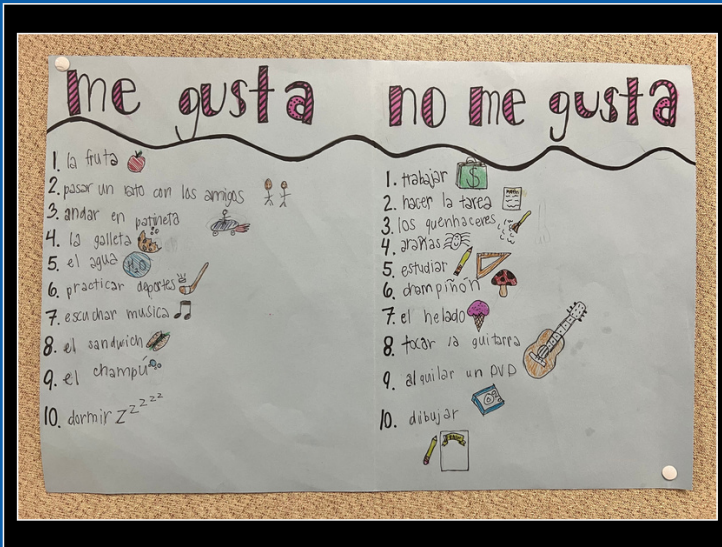 me gusta
1. la fruta
2. pasar un rato con los amigos
3. andar en patineta
4. la galleta
5. el agua H₂O
6. practicar deportes
7. escuchar musica
8. el sandwich
9. el champú
10. dormir zzzzzz
no me gusta
1. trabajar $
2. hacer la tarea
3. los quenhaceres
4. arañas
5. estudiar
6. champiñón
7. el helado
8. tocar la guitarra
9. alquilar un DVD
10. dibujar